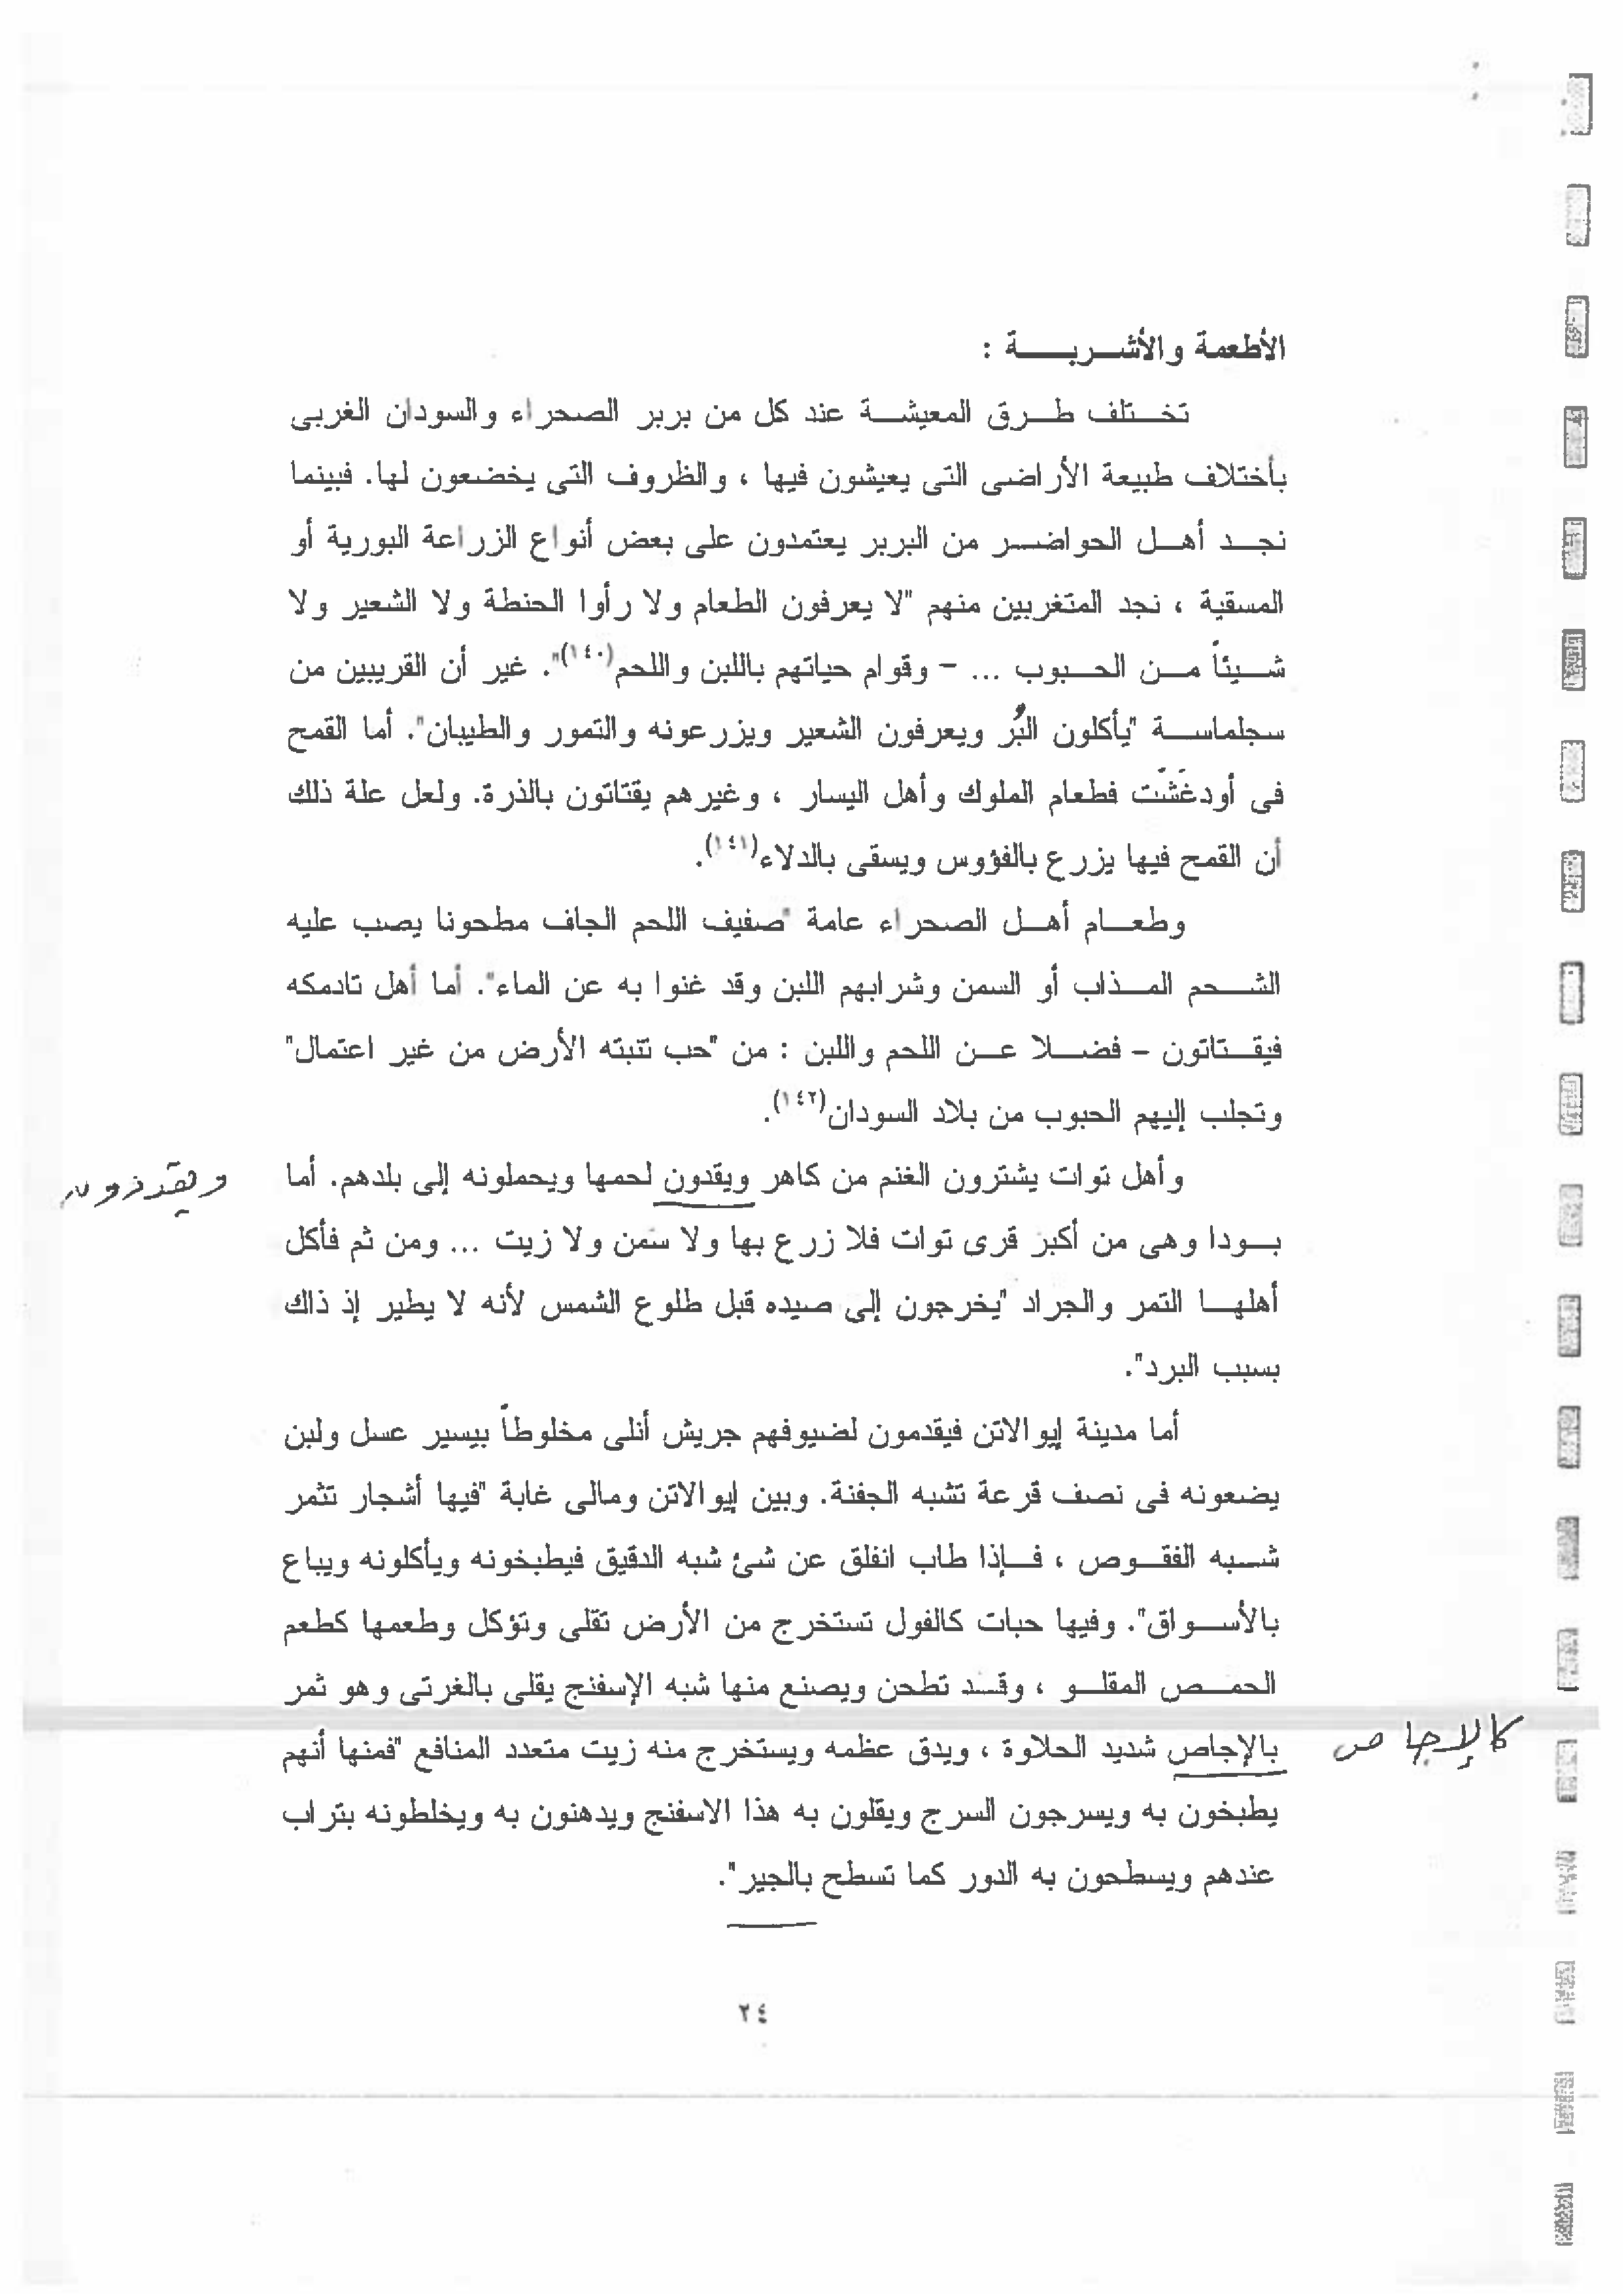 الأطعمة والأشربة :
تختلف طرق المعيشة عند كل من بربر الصحراء والسودان الغربى
بأختلاف طبيعة الأراضى التى يعيشون فيها ، والظروف التى يخضعون لها. فبينما
نجد أهل الحواضر من البربر يعتمدون على بعض أنواع الزراعة البورية أو
المسقية ، نجد المتغربين منهم "لا يعرفون الطعام ولا رأوا الحنطة ولا الشعير ولا
شيئاً من الحبوب ... – وقوام حياتهم باللبن واللحم(١٤٠)". غير أن القريبين من
سجلماسة "يأكلون البُر ويعرفون الشعير ويزرعونه والتمور والطيبان". أما القمح
فى أودغَشّت فطعام الملوك وأهل اليسار ، وغيرهم يقتاتون بالذرة. ولعل علة ذلك
أن القمح فيها يزرع بالفؤوس ويسقى بالدلاء(١٤١).
وطعام أهل الصحراء عامة "صفيف اللحم الجاف مطحونا يصب عليه
الشحم المذاب أو السمن وشرابهم اللبن وقد غنوا به عن الماء". أما أهل تادمكه
فيقتاتون – فضلا عن اللحم واللبن : من "حب تنبته الأرض من غير اعتمال"
وتجلب إليهم الحبوب من بلاد السودان(١٤٢).
وأهل توات يشترون الغنم من كاهر ويقدون لحمها ويحملونه إلى بلدهم. أما
بودا وهى من أكبر قرى توات فلا زرع بها ولا سمن ولا زيت ... ومن ثم فأكل
أهلها التمر والجراد "يخرجون إلى صيده قبل طلوع الشمس لأنه لا يطير إذ ذاك
بسبب البرد".
أما مدينة إيوالاتن فيقدمون لضيوفهم جريش أنلى مخلوطاً بيسير عسل ولبن
يضعونه فى نصف قرعة تشبه الجفنة. وبين إيوالاتن ومالى غابة "فيها أشجار تثمر
شبه الفقوص ، فإذا طاب انفلق عن شئ شبه الدقيق فيطبخونه ويأكلونه ويباع
بالأسواق". وفيها حبات كالفول تستخرج من الأرض تقلى وتؤكل وطعمها كطعم
الحمص المقلو ، وقد تطحن ويصنع منها شبه الإسفنج يقلى بالغرتى وهو ثمر
كالإجاص
بالإجاص شديد الحلاوة ، ويدق عظمه ويستخرج منه زيت متعدد المنافع "فمنها أنهم
يطبخون به ويسرجون السرج ويقلون به هذا الاسفنج ويدهنون به ويخلطونه بتراب
عندهم ويسطحون به الدور كما تسطح بالجير".
٢٤